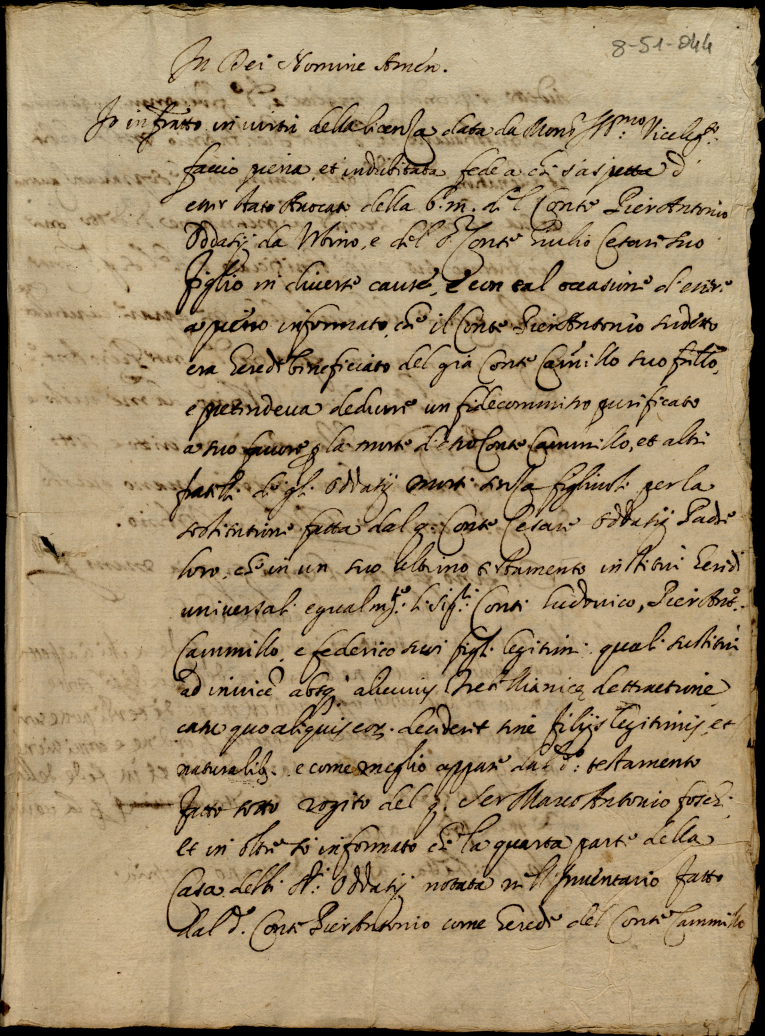 8-51-044
In Dei Nomine Amen.
Io infrãtto in virtù della licenza data da Mons.r Ill.mo Vicelg.to
faccio piena, et indubitata fede a chi s'aspetta d'
esser stato Avocato della b. m. del Conte Pier Antonio
Oddatij da Urbino, e del S.r Conte Giulio Cesare suo
figlio in diverse cause, e con tal occasione di esser
a pieno informato, che il Conte Pier Antonio sudetto
era herede beneficiato del già Conte Camillo suo frãllo,
e pretendeva dedurre un fidecommisso purificato
a suo favore p la morte di detto Conte Cammillo, et altri
fratelli de gli Oddatij morti senza figliuoli per la
sostitutione fatta dal q. Conte Cesare Oddatij Padre
loro, che in un suo ultimo testamento instituì heredi
universali egualm.te li Sig.ri Conti Ludovico, Pier Ant.o
Cammillo, e Federico suoi figli legitimi, quali sustituì
ad invicẽ absq alicuius Trebellianicę dettractione
casu quo aliquis eor. decideret sine filijs legitimis, et
naturalib. e come meglio appare dal d.o testamento
fatto sotto rogito del q. Ser Marco Antonio Foschi
et in oltre sò informato che la quarta parte della
Casa delli SS.ri Oddatij notata nell'Inventario fatto
dal d.o Conte Pier Antonio come herede del Conte Cammillo